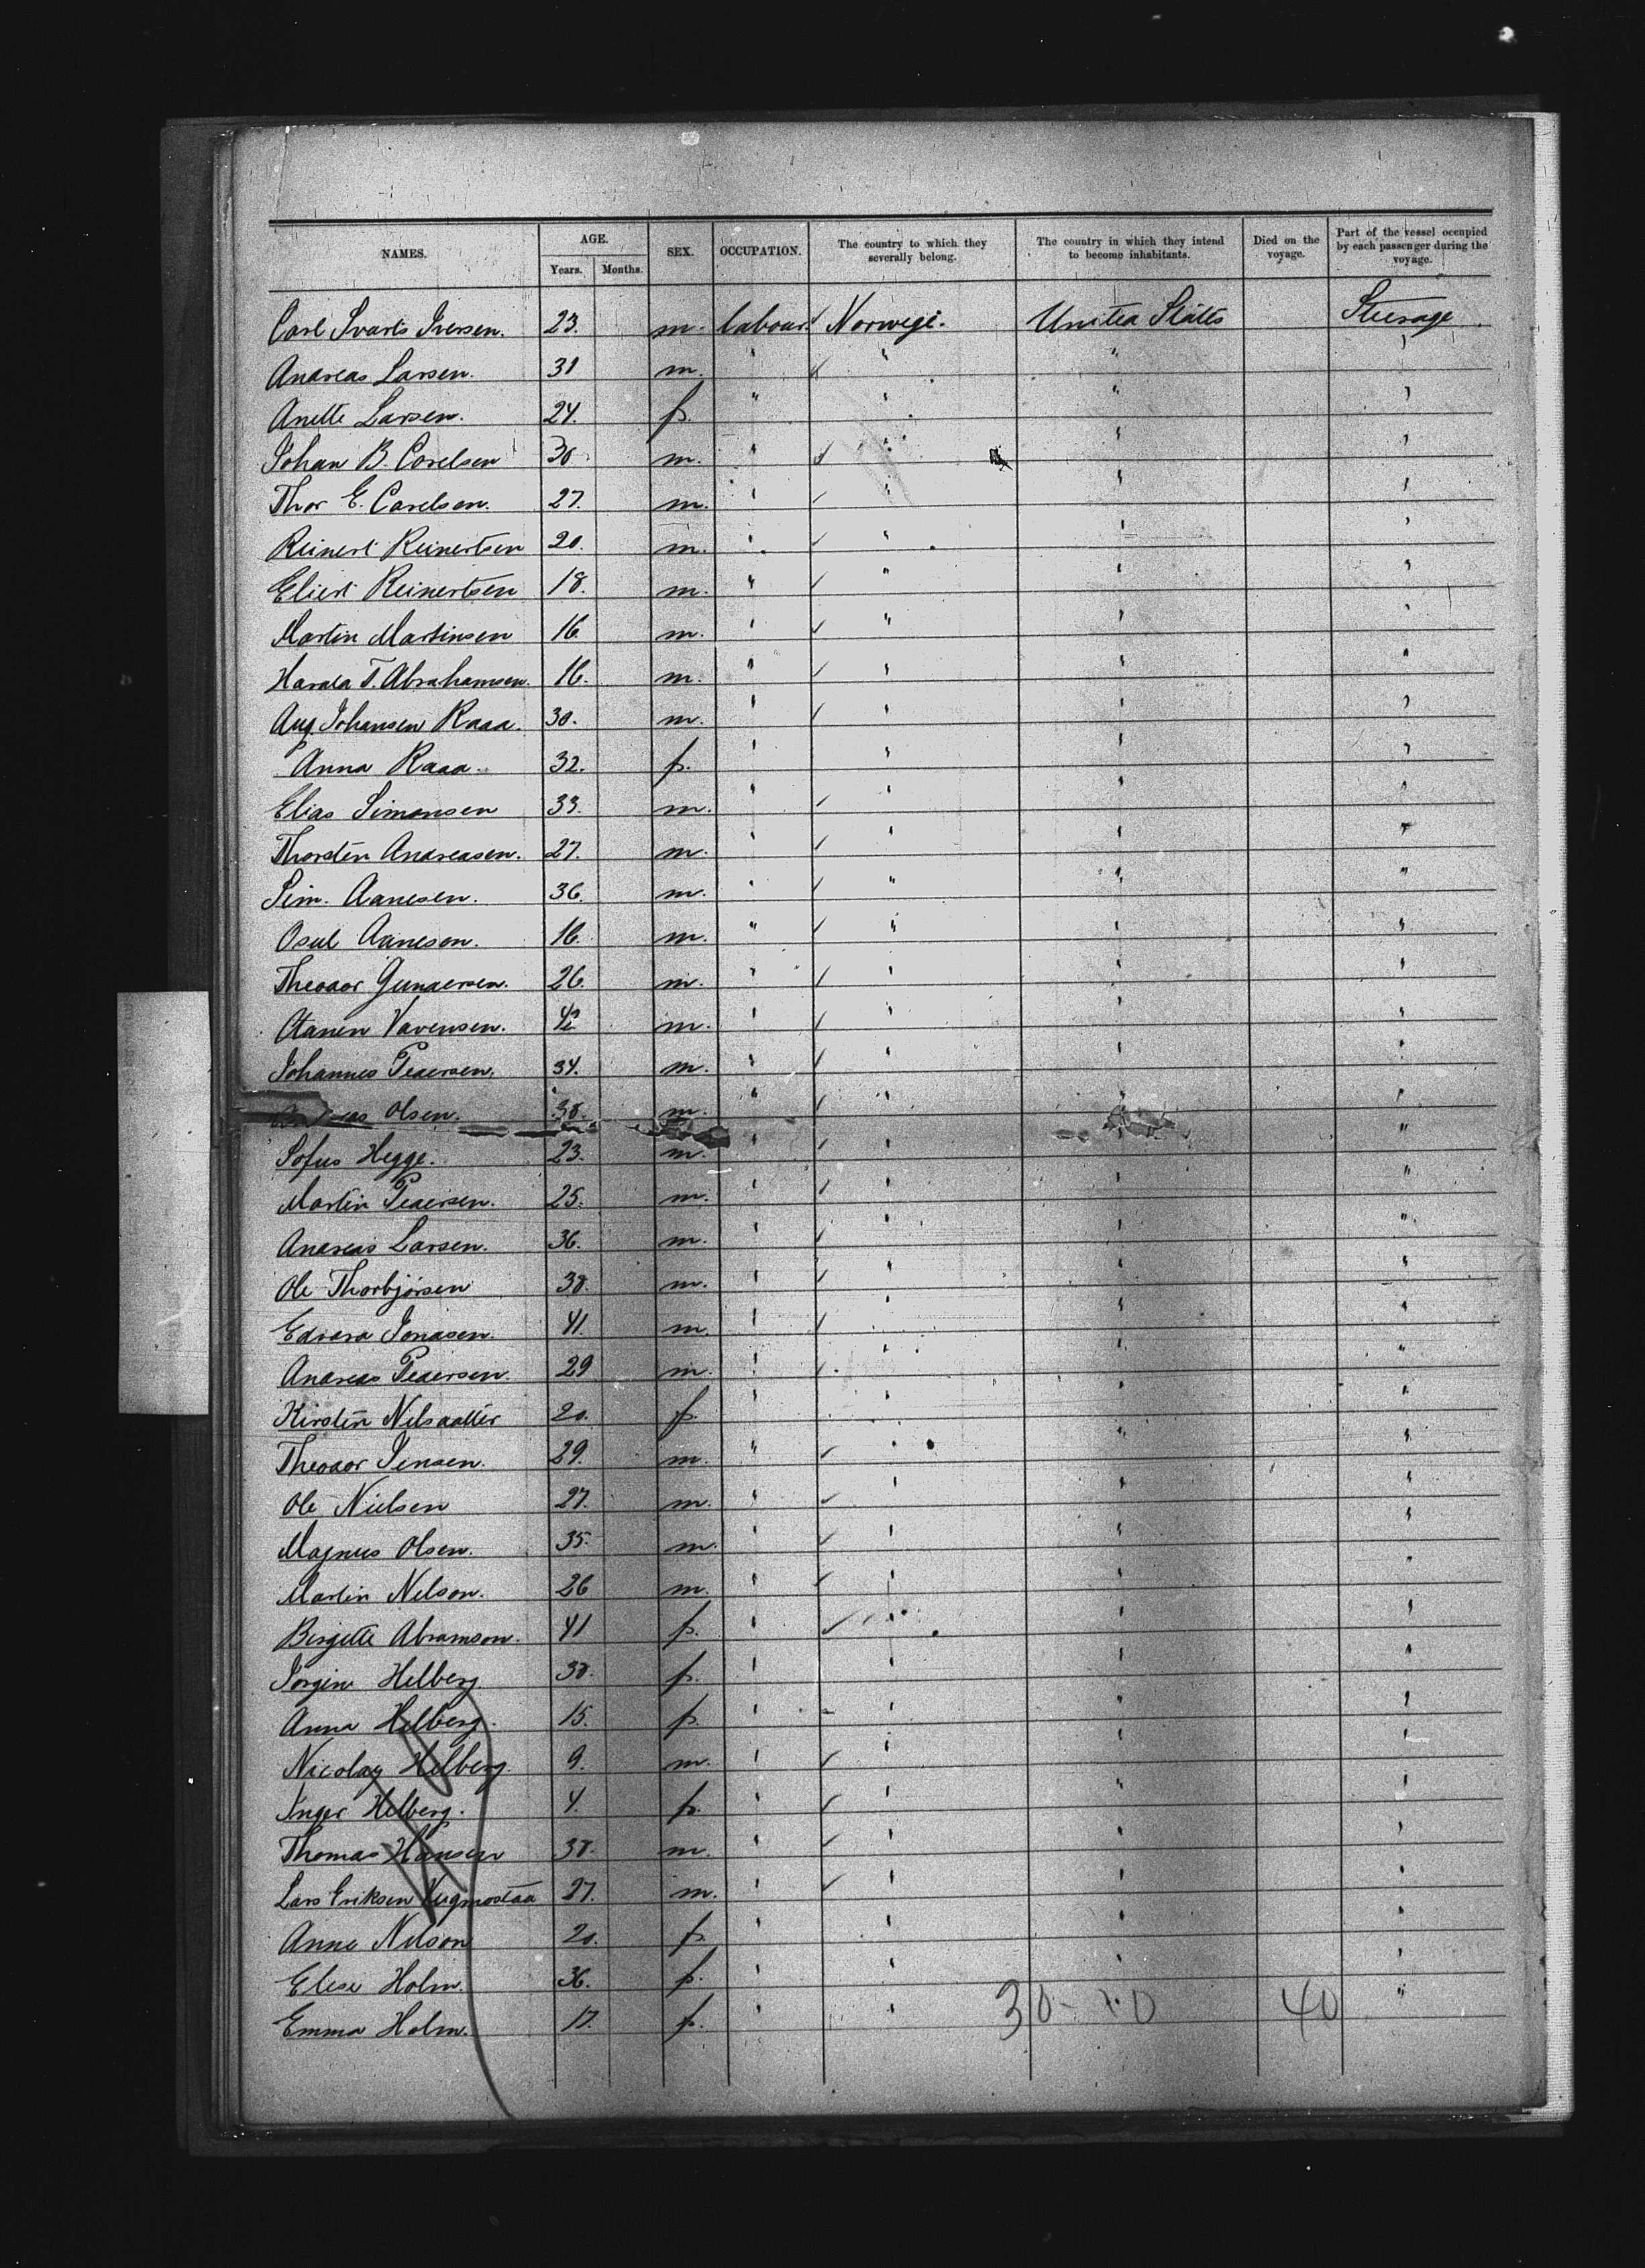 NAMES. AGE. SEX. OCCUPATION. The country to which they severally belong. The country in which they intend to become inhabitants. Died on the voyage. Part of the vessel occupied by each passenger during the voyage.
Years. Months.
Carl Svarts Iversen. 23. m. labour. Norwege. United States Steerage.
Andreas Larsen. 31 m. " " " "
Anette Larsen. 24. f. " " " "
Johan B. Carelsen 30. m. " " " "
Thor E. Carelsen. 27. m. " " " "
Reinert Reinertsen 20. m. " " " "
Eliert Reinertsen 18. m. " " " "
Martin Martinsen 16. m. " " " "
Harald T. Abrahamsen. 16. m. " " " "
Aug. Johansen Raaa. 30. m. " " " "
Anna Raaa. 32. f. " " " "
Elias Simonsen 33. m. " " " "
Thorstén Andreasen. 27. m. " " " "
Sim. Aanesen. 36. m. " " " "
Osul Aanesen. 16. m. " " " "
Theodor Gundersen. 26. m. " " " "
Vavensen. m. " " " "
Johannes Pedersen. 34. m. " " " "
Olsen. 38. m. " " " "
Sofus Hegge. 23. m. " " " "
Martin Pedersen. 25. m. " " " "
Andreas Larsen. 36. m. " " " "
Ole Thorbjörsen 38. m. " " " "
Edvard Jonasen. 41. m. " " " "
Andreas Pedersen. 29 m. " " " "
Kirstén Nelsdatter 20. f. " " " "
Theodor Jensen. 29. m. " " " "
Ole Nielsen 27. m. " " " "
Magnus Olsen. 35. m. " " " "
Martin Nelson. 26 m. " " " "
Birgitte Abramson. 41 f. " " " "
Jorgine Helberg 38. f. " " " "
Anna Helberg. 15. f. " " " "
Nicolay Helberg. 9. m. " " " "
Inger Helberg. 4. f. " " " "
Thomas Hansen 38. m. " " " "
Lars Eriksen 27. m. " " " "
Anne Nelson 20. f. " " " "
Elise Holm. 36. f. " " " "
Emma Holm. 17. f. " " 30 - 10 40 "